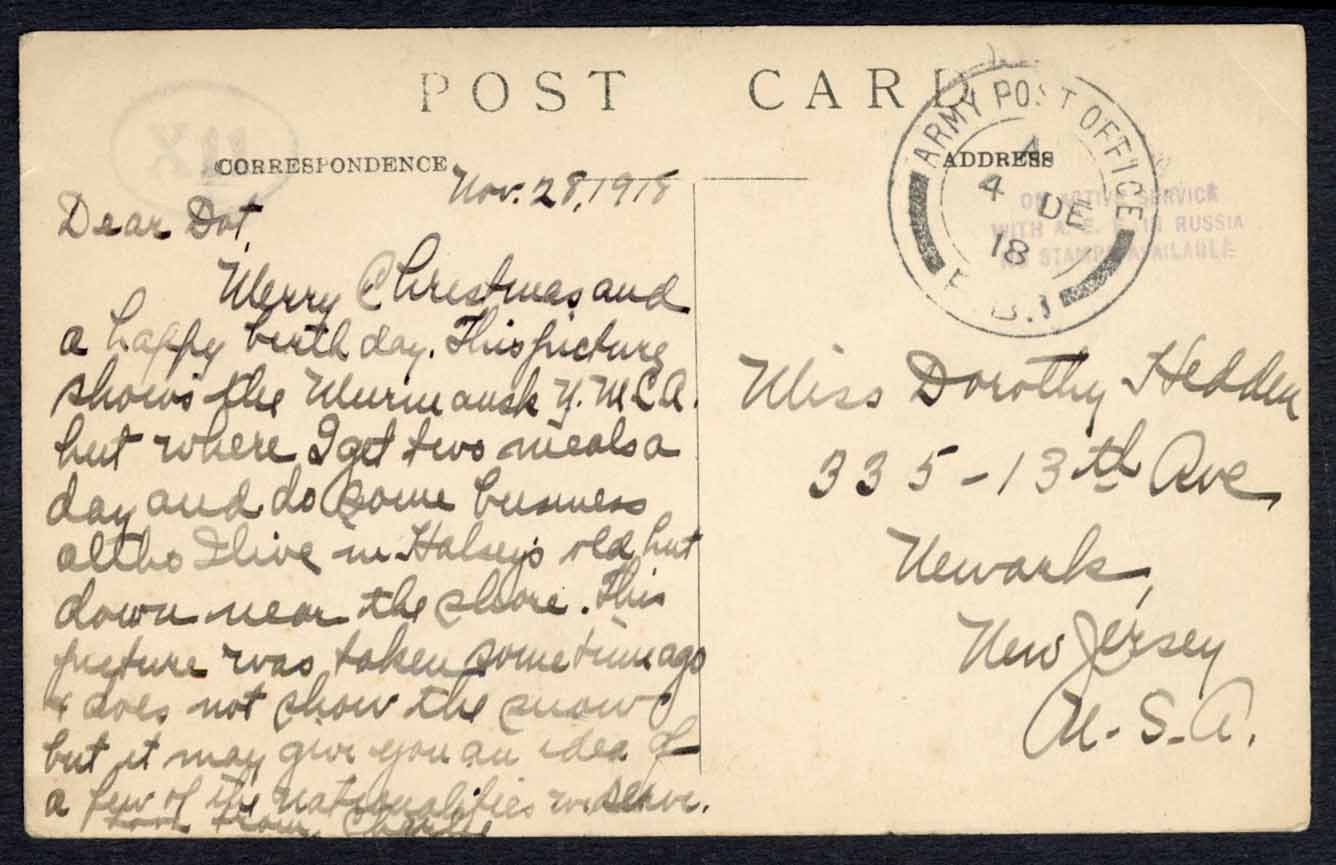 POST CARD
CORRESPONDENCE
ADDRESS
XII
ARMY POST OFFICE
4 DE
18
P.B.1
ON ACTIVE SERVICE
WITH A. E. F. IN RUSSIA
NO STAMPS AVAILABLE
Nov. 28, 1918
Dear Dot,
Merry Christmas and
a happy birthday. This picture
shows the Murmansk Y.M.C.A.
hut where I get two meals a
day and do some business
altho I live in Halsey's old hut
down near the shore. This
picture was taken sometime ago
& does not show the snow
but it may give you an idea of
a few of the nationalities we serve.
from Charlie
Miss Dorothy Hedden
335-13th Ave,
Newark,
New Jersey
U.S.A.